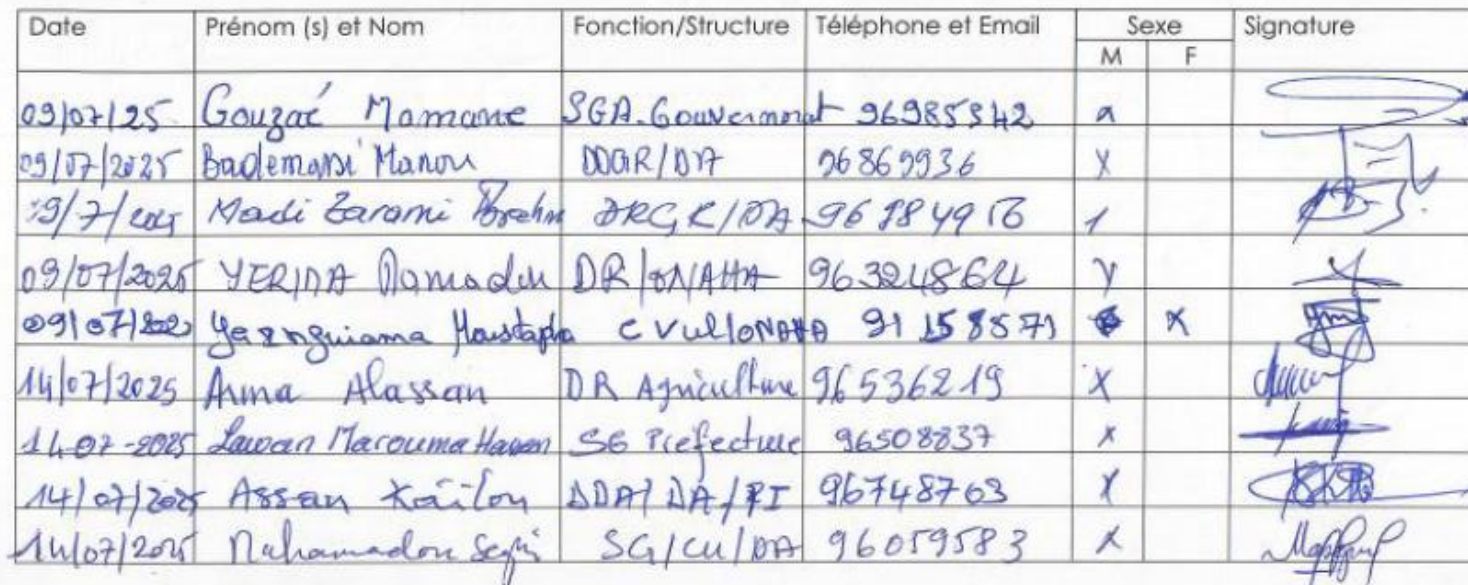 Date Prénom (s) et Nom Fonction/Structure Téléphone et Email Sexe Signature
M F
09/07/25 Gouzaé Mamane SGA.Gouvernorat 96985342 a
09/07/2025 Bademassi Manou DDGR/DA 96869936 X
9/7/2025 Madi Zarami DRGR/DA
09/07/2025 YERIMA Mamadou DR/ONAHA 96324864 Y
09/07/202 Yaznguiama Moustapha ONAHA 91158571 X
14/07/2025 Arma Alassan DR Agriculture 96536219 X
14-07-2025 Lawan Marouma Hassan SG Prefecture 96508837 X
14/07/2025 Assan Kaïlou DDA/DA/PI 96748763 X
14/07/2025 Mahamadou SG/CU/DA 96059583 X